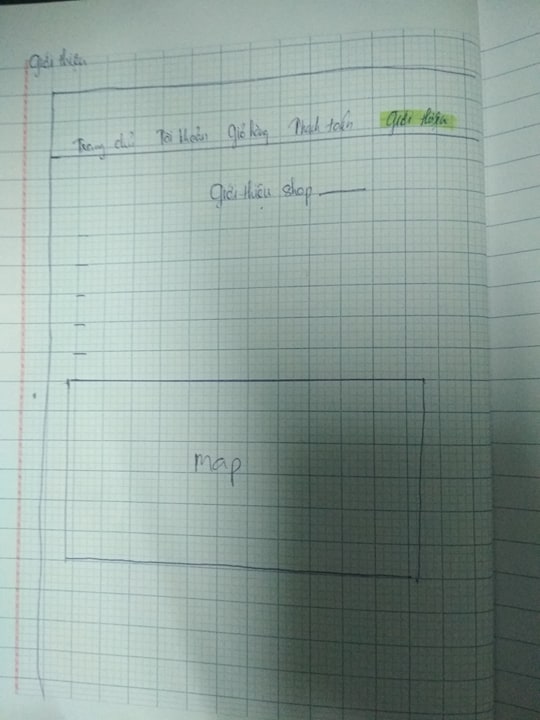 Giới thiệu
Trang chủ Tài khoản Giỏ hàng Thanh toán Giới thiệu
Giới thiệu shop
Map